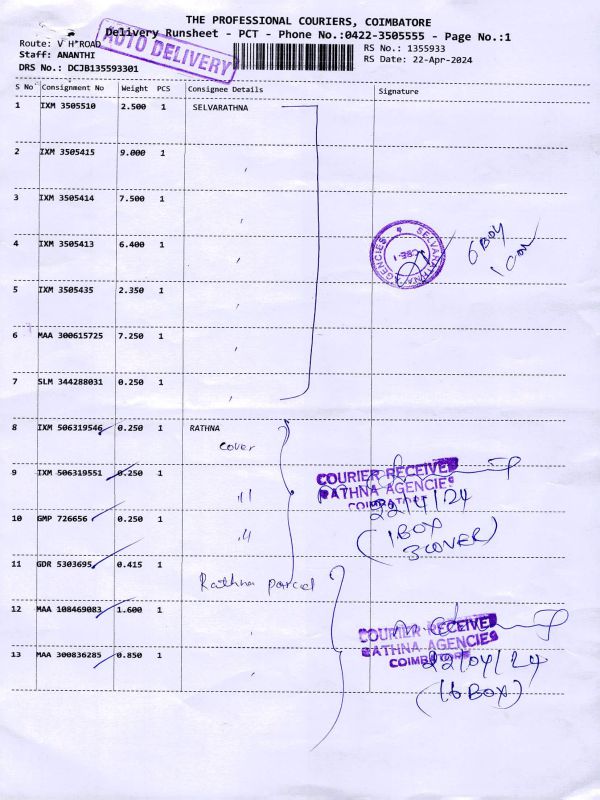 THE PROFESSIONAL COURIERS, COIMBATORE
Delivery Runsheet - PCT - Phone No.:0422-3505555 - Page No.:1
Route: V H ROAD
AUTO DELIVERY
RS No.: 1355933
Staff: ANANTHI
RS Date: 22-Apr-2024
DRS No.: DCJB135593301
S No Consignment No Weight PCS Consignee Details Signature
1 IXM 3505510 2.500 1 SELVARATHNA
2 IXM 3505415 9.000 1
3 IXM 3505414 7.500 1
4 IXM 3505413 6.400 1
SELVARATHNA AGENCIES
6 BOX
1 COV
5 IXM 3505435 2.350 1
6 MAA 300615725 7.250 1
7 SLM 344288031 0.250 1
8 IXM 506319546 0.250 1 RATHNA
cover
9 IXM 506319551 0.250 1
COURIER RECEIVED
RATHNA AGENCIES
COIMBATORE
22/4/24
10 GMP 726656 0.250 1
(1 BOX
3 COVER)
11 GDR 5303695 0.415 1
Rathna parcel
12 MAA 108469083 1.600 1
COURIER RECEIVED
RATHNA AGENCIES
COIMBATORE
22/04/24
13 MAA 300836285 0.850 1
(6 BOX)